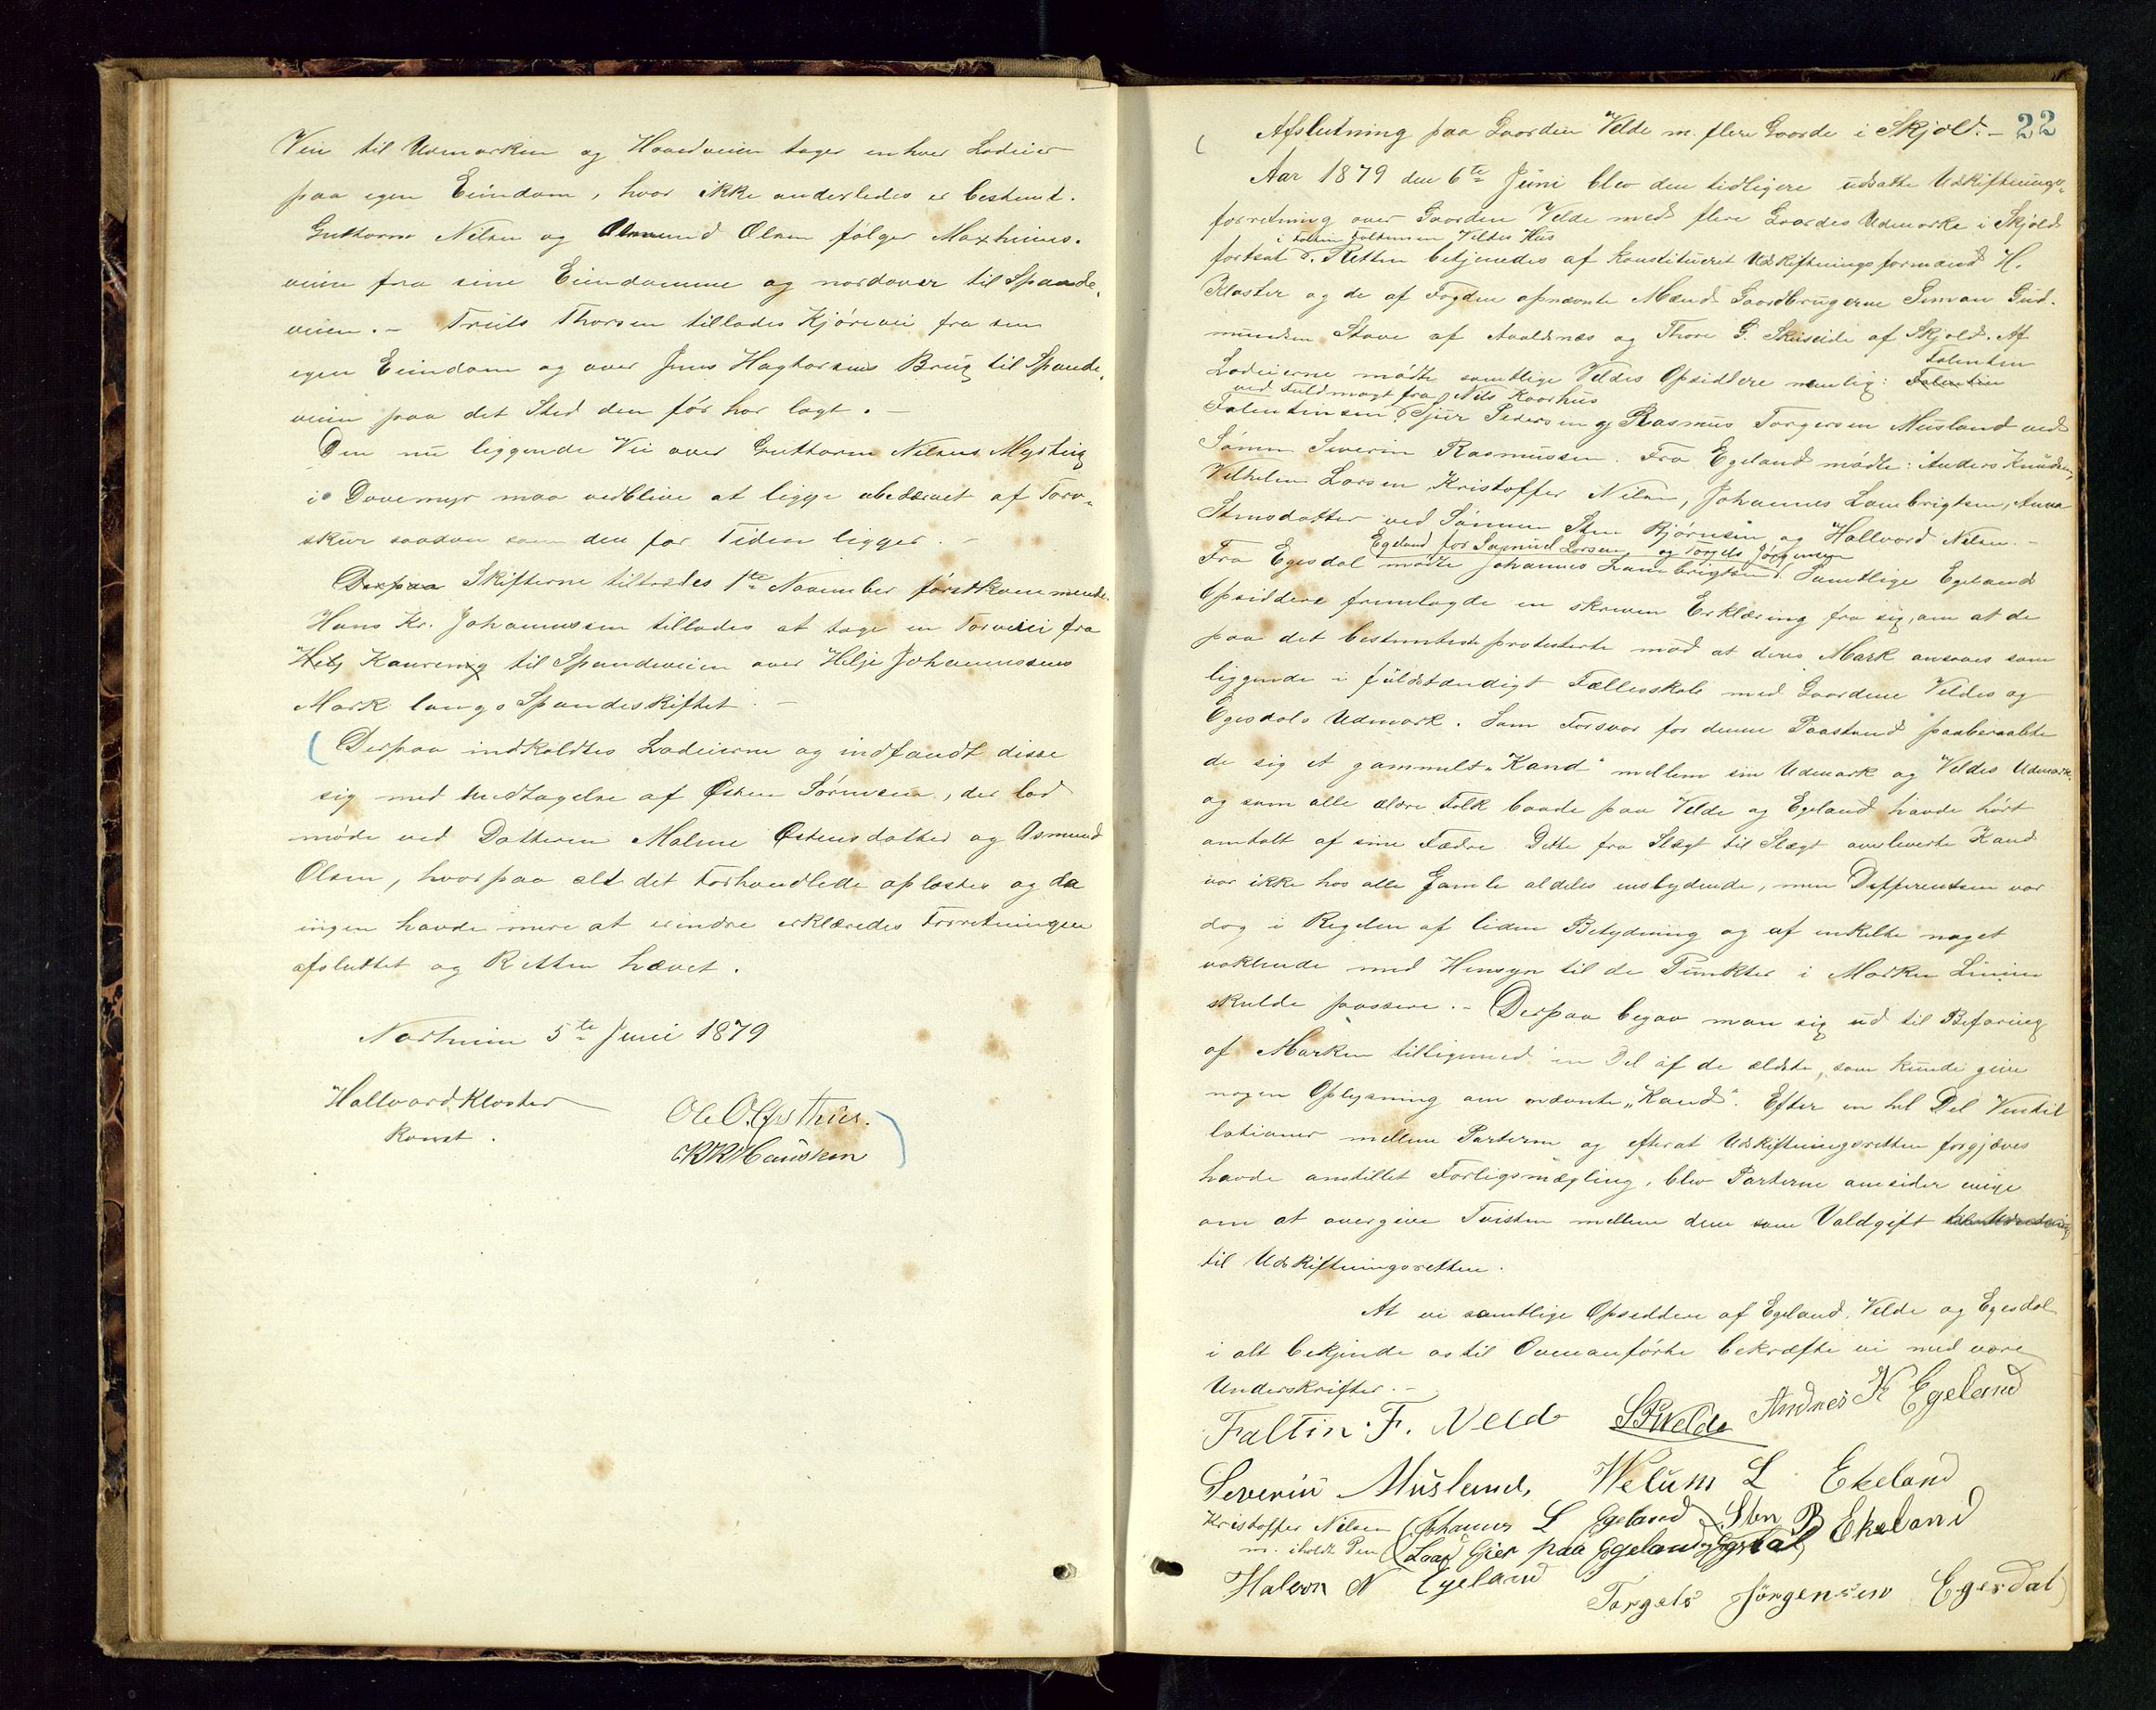 Veie til Udmarken og Hovedveien tager enhver Lodeier
paa egen Eiendom, hvor ikke anderledes er bestemt.
Guttorm Nilsen og Asmund Olsen følger Maxhines-
veien fra sine Eiendomme og nordover til Spande-
veien. – Truls Thorsen tillades Kjørevei fra sin
egen Eiendom og over Jens Hagtorsens Brug til Spande-
veien paa det Sted den før har lagt. –
Den nu liggende Vei over Guttorm Nilsens Myrteig
i Dovemyr maa vedblive at ligge ubeskaaret af Torv-
skur saadan som den for Tiden ligger. –
Derpaa Skifterne tiltrædes 1te November førstkommende.
Hans Kr. Johannessen tillades at tage en Torvvei fra
Kauremyr til Spandeveien over Helje Johannessens
Mark langs Spandeskiftet. –
Derpaa indkaldtes Lodeierne og indfandt disse
sig med Undtagelse af Østen Sørensen, der lod
møde ved Datteren Malene Østensdatter og Asmund
Olsen, hvorpaa alt det Forhandlede oplæstes og da
ingen havde mere at erindre erklæredes Forretningen
afsluttet og Retten hævet.
Northeim 5te Juni 1879
Hallvard Kloster
Konst.
Ole O. Gjesthus.
K K Hausken
22
Afslutning paa Gaarden Velde m. flere Gaarde i Skjold. –
Aar 1879 den 6te Juni blev den tidligere udsatte Udskiftnings-
forretning over Gaarden Velde med flere Gaardes Udmarke i Skjold
i Faltin Faltinsen Veldes Hus
fortsat. Retten betjenedes af konstitueret Udskiftningsformand H.
Kloster og de af Fogden opnævnte Mænd Gaardbrugerne Simon Gud-
mundsen Stave af Avaldsnæs og Thore G. Skeiseide af Skjold. Af
Falentin
Lodeierne mødte samtlige Veldes Opsiddere nemlig: Falentin
ved Fuldmagt fra Nils Kaarhus
Falentinsen, Sjur Pedersen og Rasmus Torgersen Musland ved
Sønnen Severin Rasmussen. Fra Egeland mødte: Anders Knudsen,
Vilhelm Larsen, Kristoffer Nilsen, Johannes Lambrigtsen, Anna
Stensdatter ved Sønnen Sten Bjørnsen og Hallvard Nilsen. –
Egeland for Samuel Larsen og Torgels Jørgensen
Fra Egesdal mødte Johannes Lambrigtsen. Samtlige Egelands
Opsiddere fremlagde en skreven Erklæring fra sig, om at de
paa det bestemteste protesterte mod at deres Mark ansaaes som
liggende i fuldstændigt Fællesskab med Gaardene Veldes og
Egesdals Udmark. Som Forsvar for denne Paastand paaberaabte
de sig et gammelt „Kand“ mellem sin Udmark og Veldes Udmark,
og som alle ældre Folk baade paa Velde og Egeland havde hørt
omtalt af sine Fædre. Dette fra Slægt til Slægt overleverte Kand
var ikke hos alle Gamle aldeles enslydende, men Differentsen var
dog i Regelen af liden Betydning og af enkelte noget
vaklende med Hensyn til de Punkter i Marken Linien
skulde passere. – Derpaa begav man sig ud til Befaring
af Marken tilligemed en Del af de ældste, som kunde give
nogen Oplysning om nævnte „Kand“. Efter en hel Del Venti-
lationer mellem Parterne og efterat Udskiftningsretten forgjæves
havde anstillet Forligsmægling, blev Parterne omsider enige
om at overgive Tvisten mellem dem som Voldgift
til Udskiftningsretten.
At vi samtlige Opsiddere af Egeland, Velde og Egesdal
i alt bekjende os til Ovenanførte bekræfte vi med vore
Underskrifter. –
Faltin F. Velde S P Welde Andres K Egeland
Severin Musland, Welum L Ekeland
Kristoffer Nilsen Johannes L Egeland Sten B Ekeland
m. iholdt Pen Laad Eier paa Egeland og Egesdal
Halvor N Egeland Torgels Jørgensen Egesdal